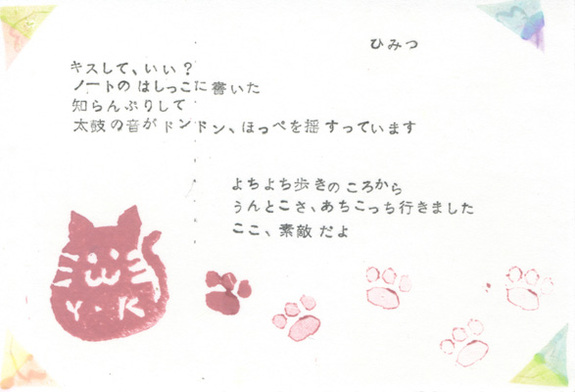 ひみつ
キスして、いい？
ノートの はしっこに書いた
知らんぷりして
太鼓の音がドンドン、ほっぺを揺すっています
よちよち歩きのころから
うんとこさ、あちこっち行きました
ここ、素敵だよ
Y・K